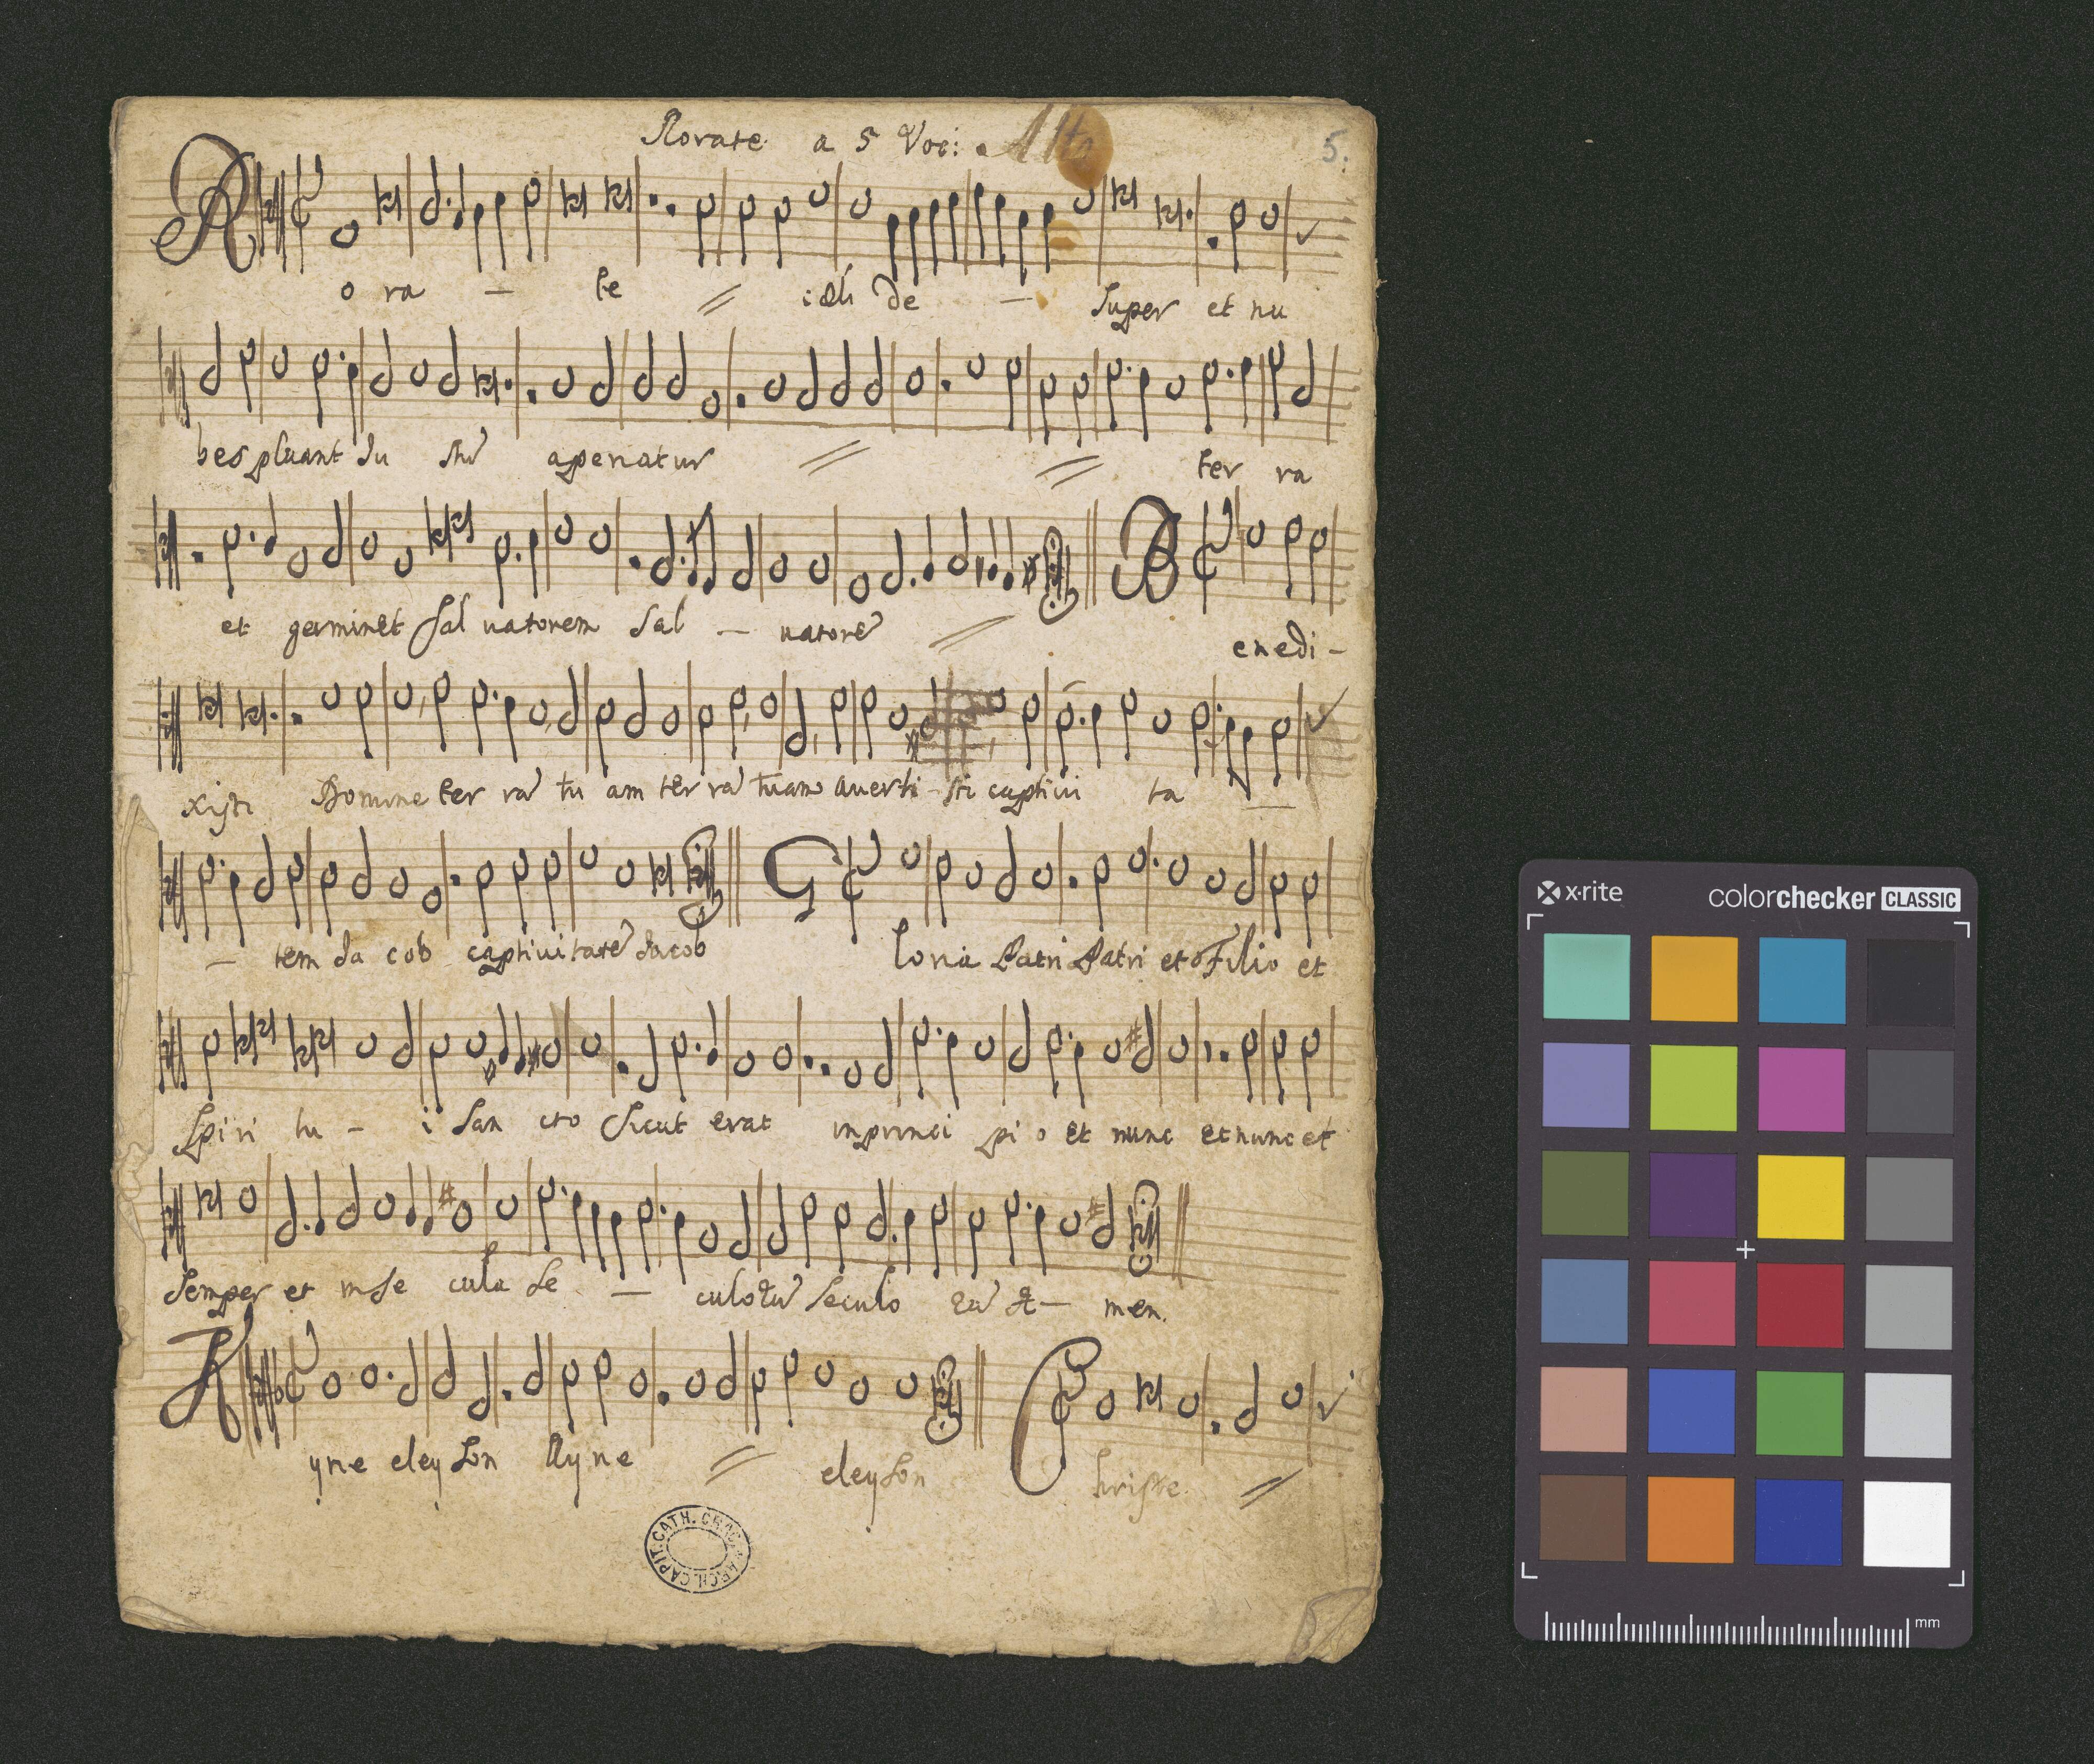 Rorate a 5 Voc: Alto
5.
R o ra – te = cæli de – super et nu
bes pluant Ju stũ aperiatur = = ter ra
et germinet Sal uatorem Sal – uatorẽ = B enedi –
xisti Domine ter rã tu am ter rã tuam auerti - sti captiui ta –
– tem Ja cob captiuitatẽ Jacob G loria Patri Patri et Filio et
Spiri tu – i San cto Sicut erat inprinci pi o et nunc et nunc et
Semper et in se cula se – men.
K yrie eleyson Kyrie = eleyson C hriste =
CAPIT. CATH. ARCH.
x-rite colorchecker CLASSIC
mm